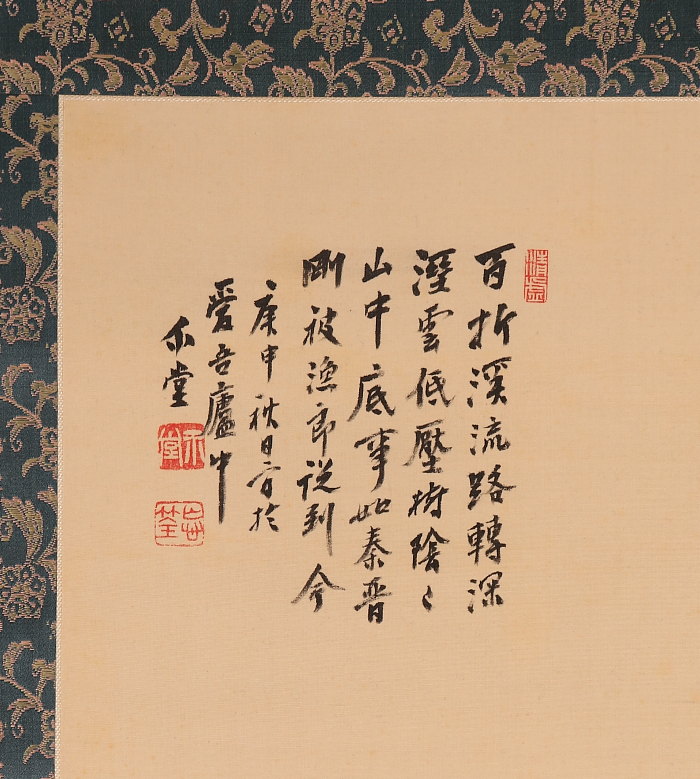 清虛
百折溪流路轉深
溼雲低壓樹陰〻
山中底事知秦晋
剛被漁郎説到今
庚申秋日寫於
愛吾廬中
堂
忘筌